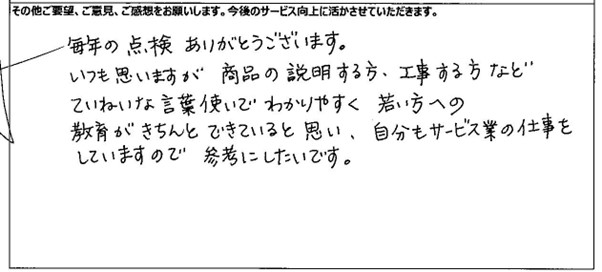 その他ご要望、ご意見、ご感想をお願いします。今後のサービス向上に活かさせていただきます。
毎年の点検 ありがとうございます。
いつも思いますが 商品の説明する方、工事する方など
ていねいな言葉使いで わかりやすく 若い方への
教育がきちんと できていると思い、自分もサービス業の仕事を
していますので 参考にしたいです。